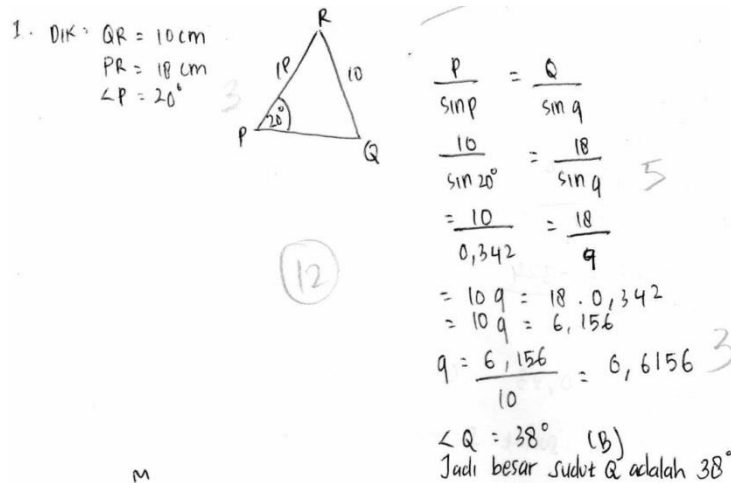 1. DIK : QR = 10 cm
PR = 18 cm
∠P = 20°
3
R
18
10
20°
P
Q
12
P/sin p = Q/sin q
10/sin 20° = 18/sin q
5
= 10/0,342 = 18/q
= 10 q = 18 . 0,342
= 10 q = 6,156
q = 6,156/10 = 0,6156
3
∠Q = 38° (B)
Jadi besar sudut Q adalah 38°
M